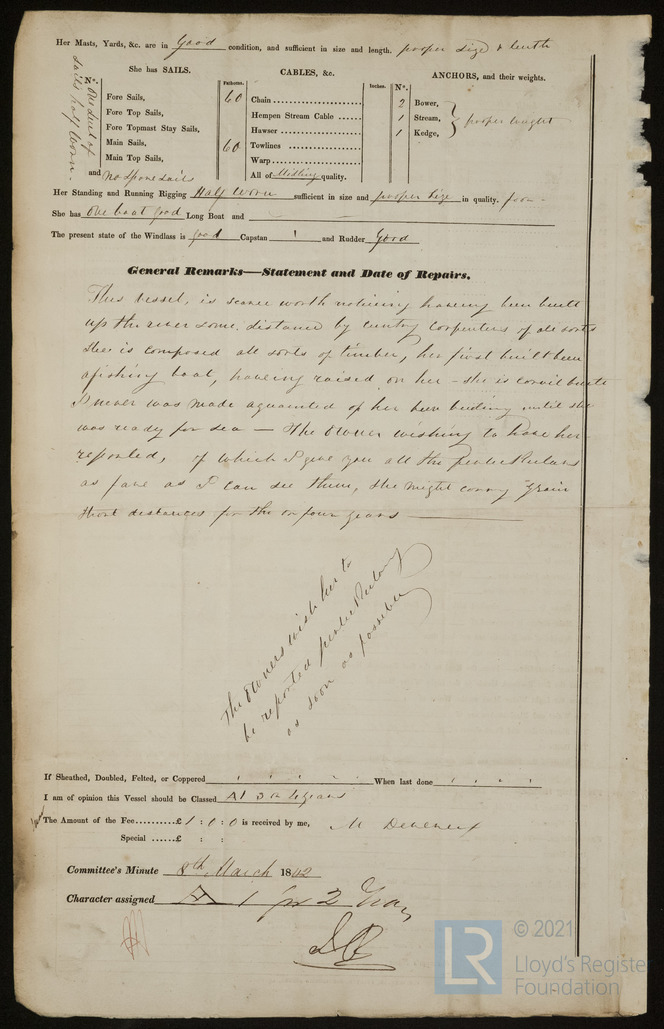 Her Masts, Yards, &c. are in Good condition, and sufficient in size and length. proper size & lenth
She has SAILS.
CABLES, &c.
ANCHORS, and their weights.
Nº.
Fathoms.
Inches.
Nº.
One Suit of
Sails half Worn.
Fore Sails,
Fore Top Sails,
Fore Topmast Stay Sails,
Main Sails,
Main Top Sails,
and no spare sails
60 Chain
Hempen Stream Cable
Hawser
60 Towlines
Warp
All of quality.
2 Bower,
1 Stream,
1 Kedge,
proper
Her Standing and Running Rigging Half Worn sufficient in size and proper size in quality.
She has One boat good Long Boat and
The present state of the Windlass is good Capstan and Rudder Good
General Remarks—Statement and Date of Repairs.
This vessel, is scarce worth noticing having been built
up the river some distance by Cuntry Carpenters of all sorts
She is composed all sorts of timber, her first built been
a fishing boat, having raised on her - she is
I never was made of her been building until she
was ready for sea — The Owner wishing to have her
reported, of which I give you all the
as fare as I can see them, she might carry Grain
short distances for or four years
The Owners wish her to
be reported
as soon as possible
If Sheathed, Doubled, Felted, or Coppered When last done
I am of opinion this Vessel should be Classed A1 3 years
The Amount of the Fee £ 1 : 0 : 0 is received by me, M
Special £ : :
Committee's Minute 8th March 1842
Character assigned A 1 for 2 Years
LR
© 2021
Lloyd's Register
Foundation